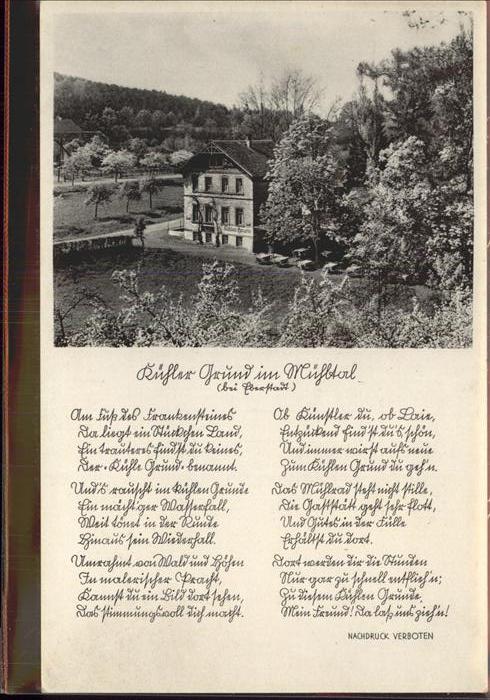 Kühler Grund im Mühltal
(bei Eberstadt)
Am Fuß des Frankensteines
Da liegt ein Stückchen Land,
Ein trauteres findst du keines,
Der "Kühle Grund" benannt.
Und's rauscht im kühlen Grunde
Ein mächt'ger Wasserfall,
Weit tönt in der Runde
Hinaus sein Wiederhall.
Umrahmt von Wald und Höhen
In malerischer Pracht,
Kannst du ein Bild dort sehen,
Das stimmungsvoll dich macht.
Ob Künstler du, ob Laie,
Entzückend find'st du's schön,
Und immer wirst aufs neue
Zum Kühlen Grund du geh'n.
Das Mühlrad steht nicht stille,
Die Gaststätt geht sehr flott,
Und Gutes in der Fülle
Erhältst du dort.
Dort werden dir die Stunden
Nur gar zu schnell entflieh'n;
Zu diesem Kühlen Grunde.
Mein Freund! Da laß uns zieh'n!
NACHDRUCK VERBOTEN